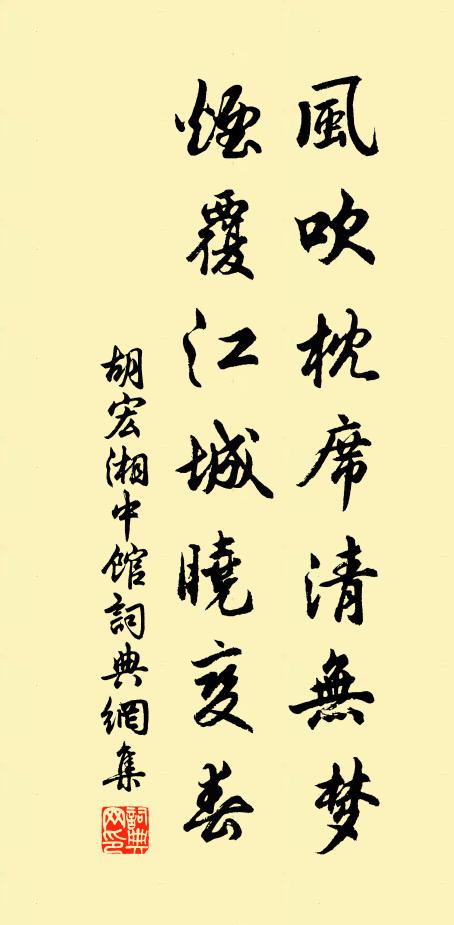 風吹枕席清無梦
煙覆江城曉变春
胡宏湘中館詞典網集
詞典网印